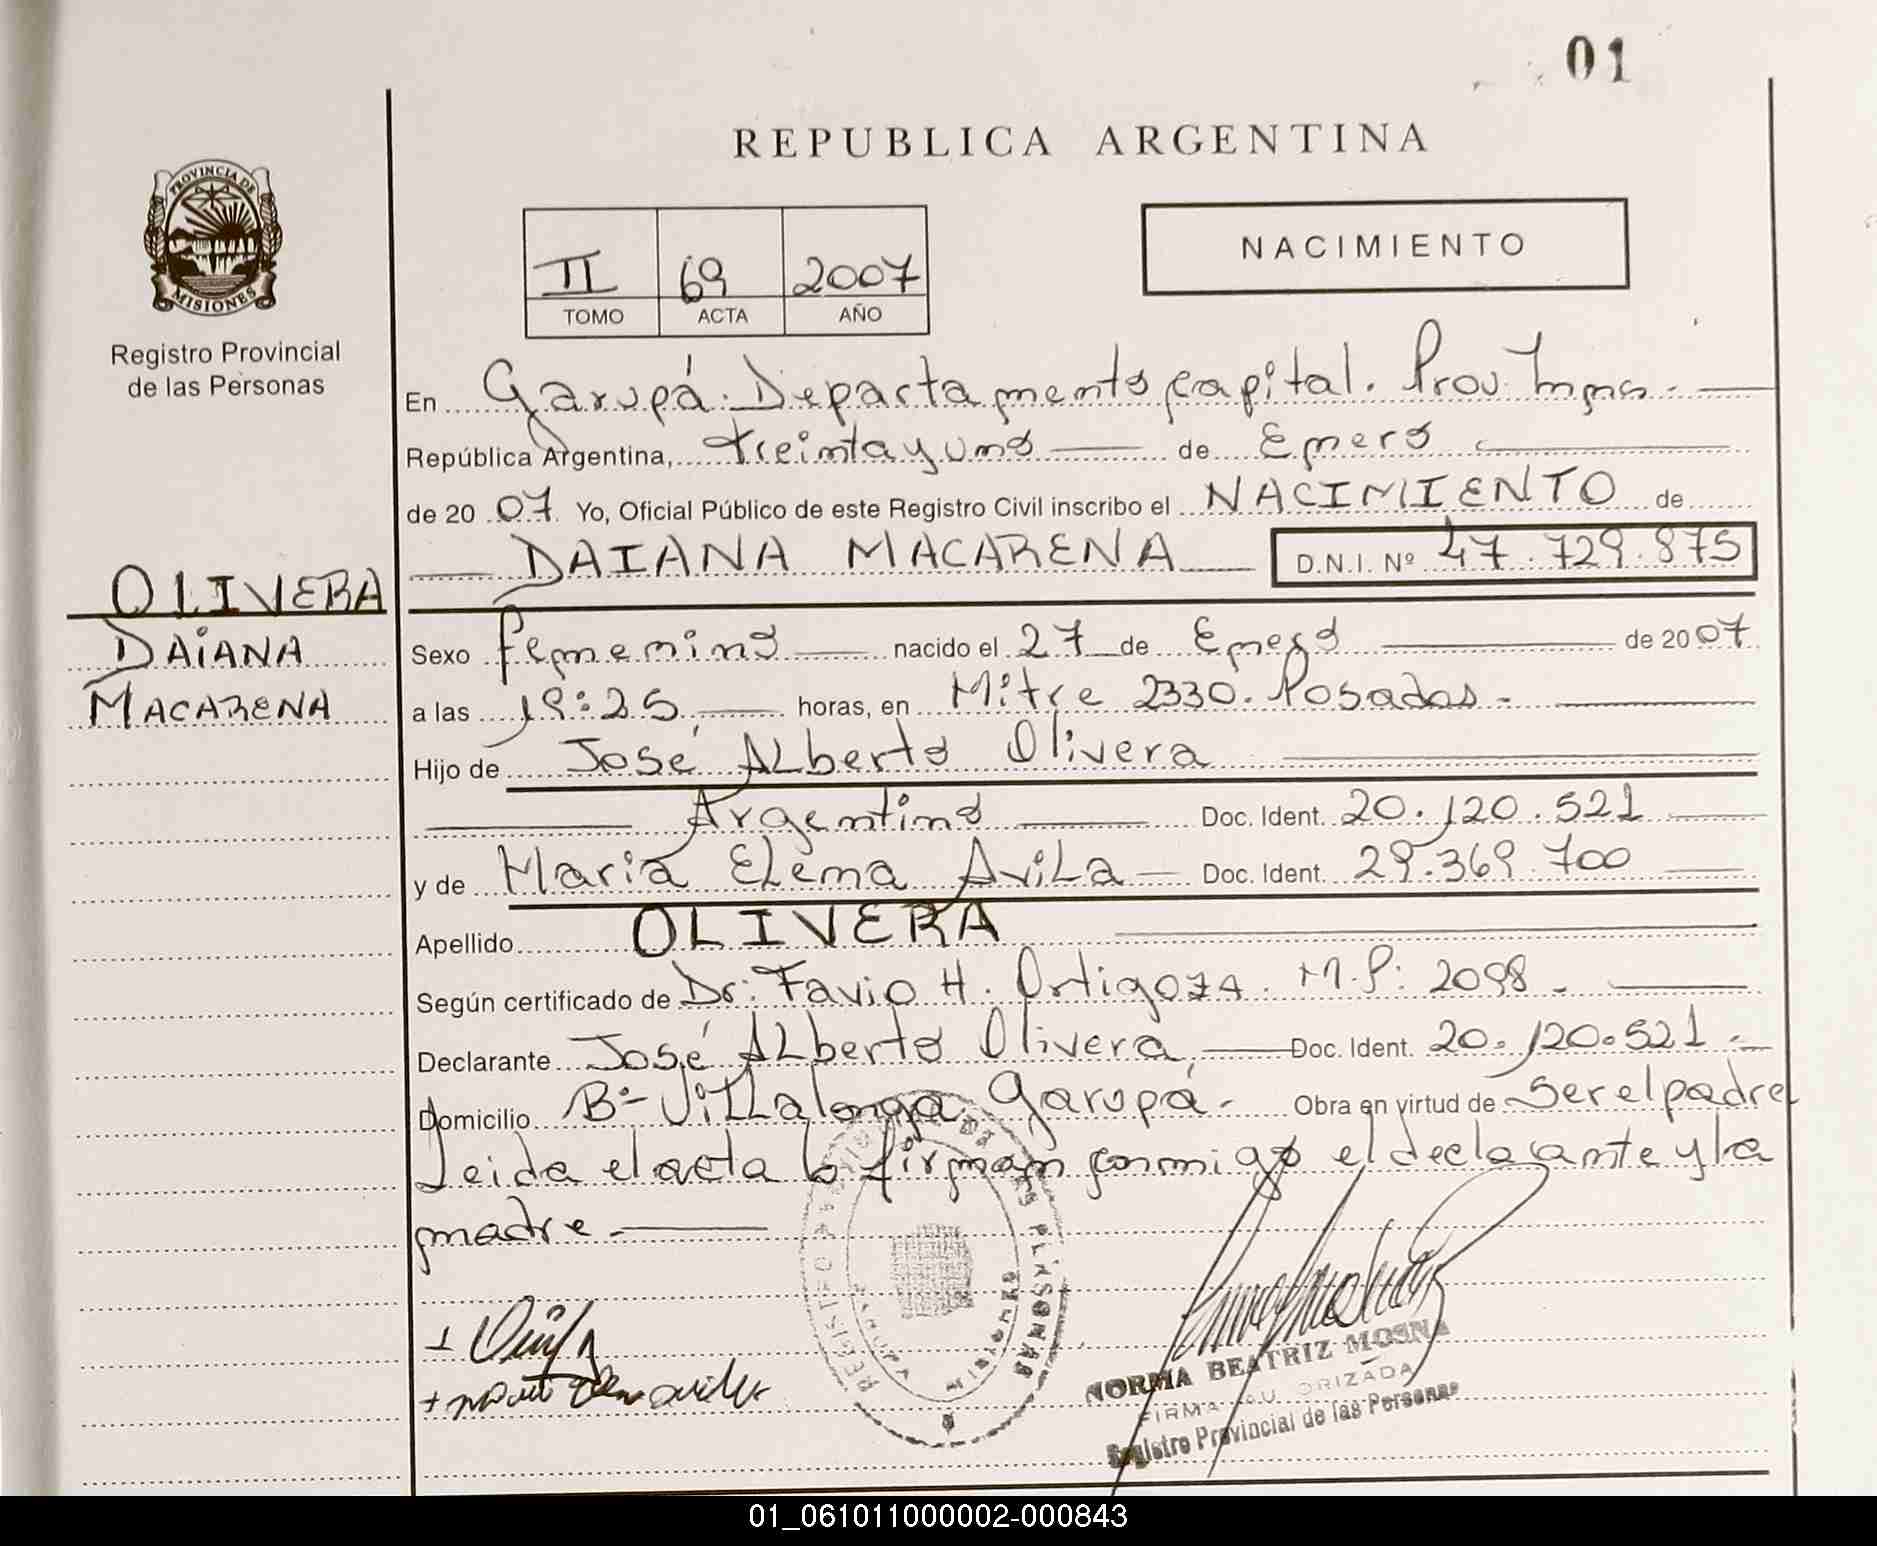 01
REPUBLICA ARGENTINA
PROVINCIA DE
MISIONES
Registro Provincial
de las Personas
II 69 2007
TOMO ACTA AÑO
NACIMIENTO
En Garupá Departamento Capital. Prov. Mnes.
República Argentina, treinta y uno de Enero
de 2007 Yo, Oficial Público de este Registro Civil inscribo el NACIMIENTO de
DAIANA MACARENA D.N.I. Nº 47.729.875
OLIVERA
DAIANA
MACARENA
Sexo femenino nacido el 27 de Enero de 2007
a las 19:25 horas, en Mitre 2330. Posadas.
Hijo de José Alberto Olivera
Argentino Doc. Ident. 20.120.521
y de Maria Elena Avila Doc. Ident. 29.369.700
Apellido OLIVERA
Según certificado de Dr: Favio H. Ortigoza. M.P: 2098.
Declarante José Alberto Olivera Doc. Ident. 20.120.521.
Domicilio Bº Villalonga Garupá. Obra en virtud de ser el padre
Leida el acta lo firman conmigo el declarante y la
madre.
REGISTRO PROVINCIAL DE LAS PERSONAS
MISIONES
NORMA BEATRIZ MOSNA
FIRMA AUTORIZADA
Registro Provincial de las Personas
01_061011000002-000843